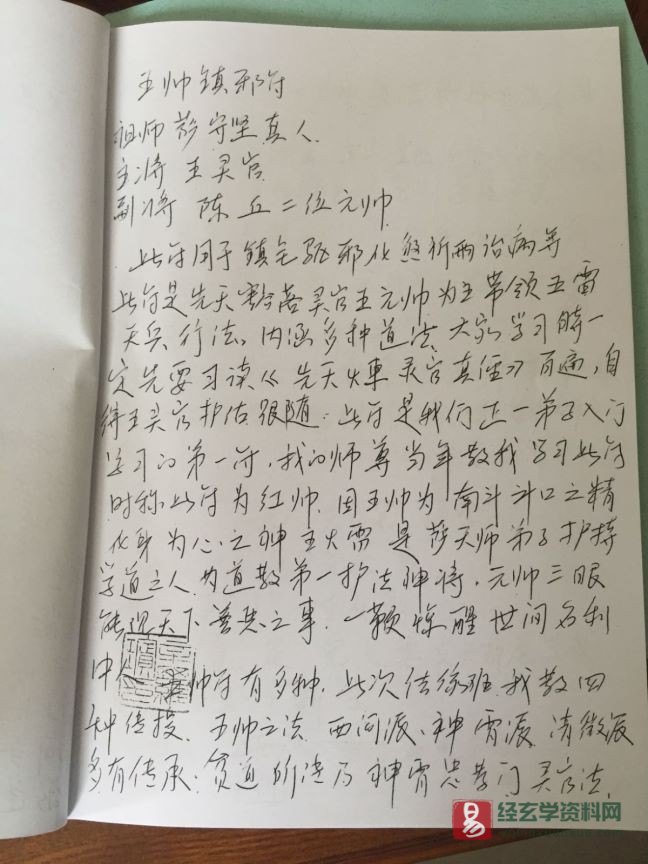 王帅镇邪符
祖师萨守坚真人
主将 王灵官
副将 陈丘二位元帅
此符用于镇宅驱邪化煞祈雨治病等
此符是先天豁落灵官王元帅为主带领五雷
天兵行法。内涵多种道法 大家学习时一
定先要习读《先天火車灵官真经》百遍,自
得王灵官护佑跟随。此符是我们正一弟子入门
学习的第一符,我的师尊当年教我学习此符
时称此符为红帅.因王帅为南斗斗口之精
化身为心之神主火雷 是萨天师弟子护持
学道之人为道教第一护法神将,元帅三眼
能观天下善恶之事.一鞭惊醒世间名利
中人 王帅符有多种.此次 班我教四
种传授.王帅之法 西河派、神霄派、清微派
多有传承:贫道所传乃神霄 专门灵官法.
经玄学资料网